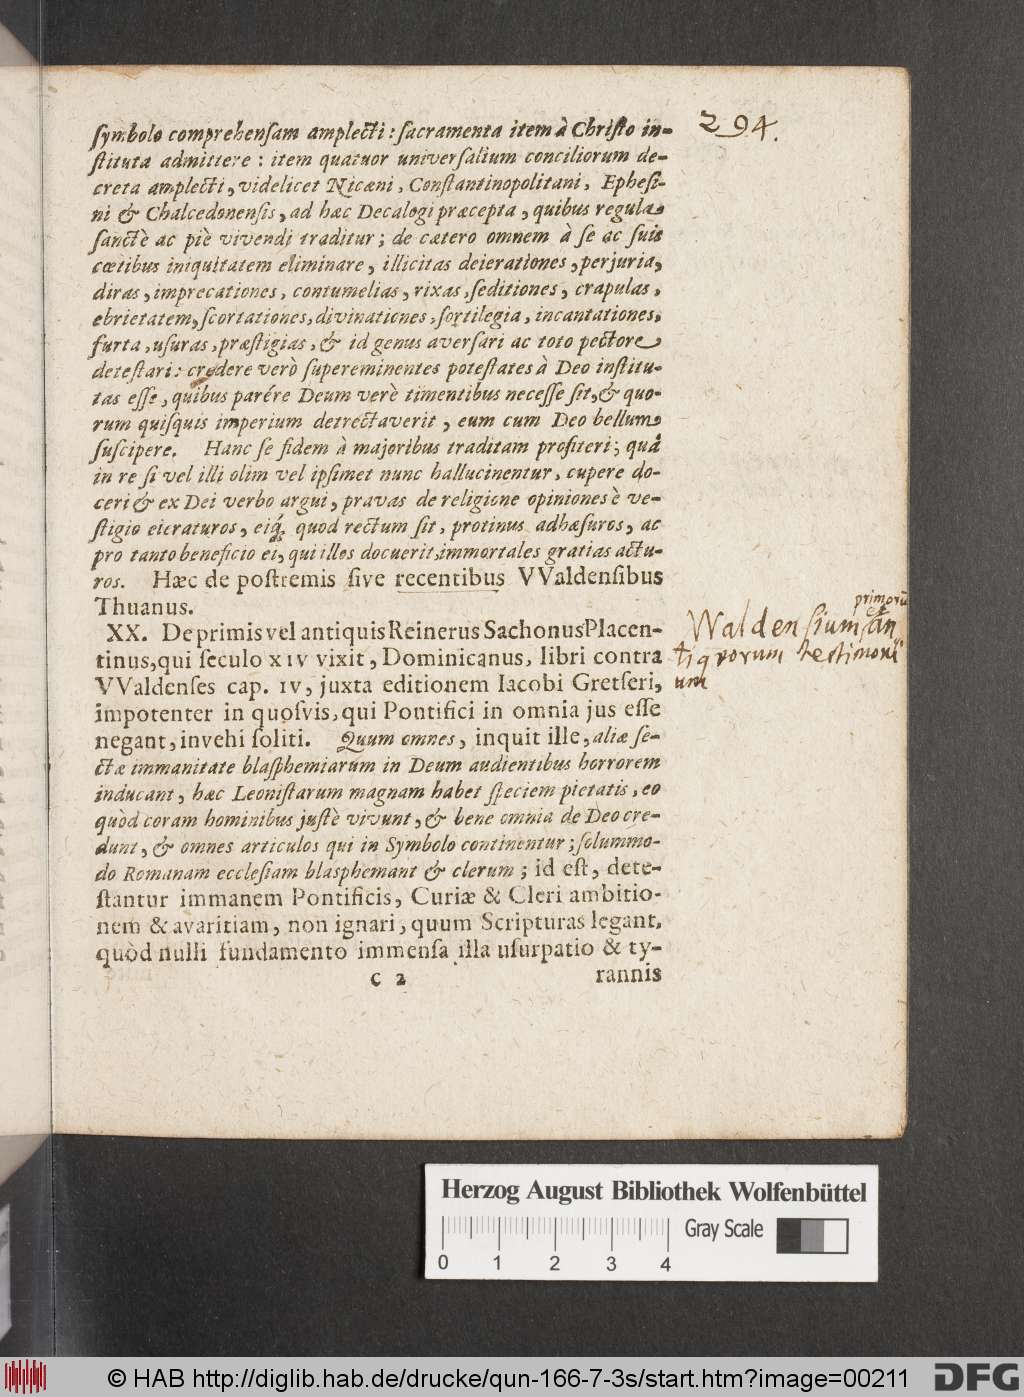 294.
ſymbolo comprehenſam amplecti : ſacramenta item à Chriſto in-
ſtituta admittere : item quatuor univerſalium conciliorum de-
creta amplecti, videlicet Nicæni, Conſtantinopolitani, Epheſi-
ni & Chalcedonenſis, ad hæc Decalogi præcepta, quibus regula
ſanctè ac piè vivendi traditur; de cætero omnem à ſe ac ſuis
cœtibus iniquitatem eliminare, illicitas deierationes, perjuria,
diras, imprecationes, contumelias, rixas, ſeditiones, crapulas,
ebrietatem, ſcortationes, divinationes, ſortilegia, incantationes,
furta, uſuras, præſtigias, & id genus averſari ac toto pectore
deteſtari: credere verò ſupereminentes poteſtates à Deo inſtitu-
tas eſſe, quibus parére Deum verè timentibus neceſſe ſit, & quo-
rum quiſquis imperium detrectaverit, eum cum Deo bellum
ſuſcipere. Hanc ſe fidem à majoribus traditam profiteri; quâ
in re ſi vel illi olim vel ipſimet nunc hallucinentur, cupere do-
ceri & ex Dei verbo argui, pravas de religione opiniones è ve-
ſtigio eieraturos, eiq́; quod rectum ſit, protinus adhæſuros, ac
pro tanto beneficio ei, qui illos docuerit, immortales gratias actu-
ros. Hæc de poſtremis ſive recentibus VValdenſibus
Thuanus.
XX. De primis vel antiquis Reinerus Sachonus Placen-
tinus, qui ſeculo XIV vixit, Dominicanus, libri contra
VValdenſes cap. IV, juxta editionem Iacobi Gretſeri,
impotenter in quoſvis, qui Pontifici in omnia jus eſſe
negant, invehi ſoliti. Quum omnes, inquit ille, aliæ ſe-
ctæ immanitate blaſphemiarum in Deum audientibus horrorem
inducant, hæc Leoniſtarum magnam habet ſpeciem pietatis, eo
quòd coram hominibus juſtè vivunt, & bene omnia de Deo cre-
dunt, & omnes articulos qui in Symbolo continentur; ſolummo-
do Romanam eccleſiam blaſphemant & clerum; id eſt, dete-
ſtantur immanem Pontificis, Curiæ & Cleri ambitio-
nem & avaritiam, non ignari, quum Scripturas legant,
quòd nulli fundamento immenſa illa uſurpatio & ty-
c 2 rannis
primorū
Waldenſium an
tiquorum teſtimoni
um
Herzog August Bibliothek Wolfenbüttel
Gray Scale
0 1 2 3 4
© HAB http://diglib.hab.de/drucke/qun-166-7-3s/start.htm?image=00211
DFG